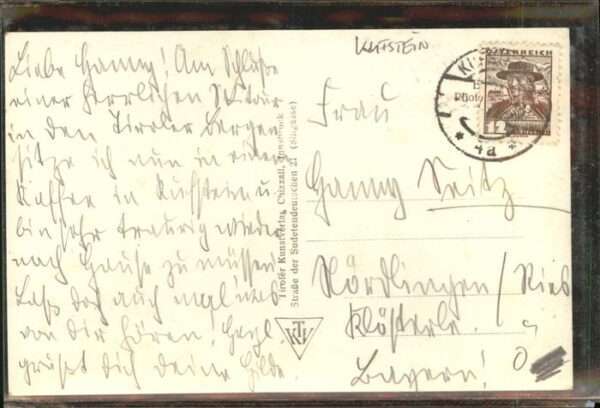 Liebe Hanny! Am Schluße
einer herrlichen Ski-Tour
in den Tiroler Bergen
sitze ich nun in einem
Kaffee in Kufstein u.
bin sehr traurig wieder
nach Hause zu müssen.
Lass doch auch mal was
von dir hören. Herzl.
grüßt Dich Deine Hilde.
Tiroler Kunstverlag Chizzali, Innsbruck
Straße der Sudetendeutschen 21 (Sillgasse)
TKV
KUFSTEIN
ÖSTERREICH
12
* 4a *
Frau
Hanny Seitz
Nördlingen / Ries
Klösterle.
Bayern!